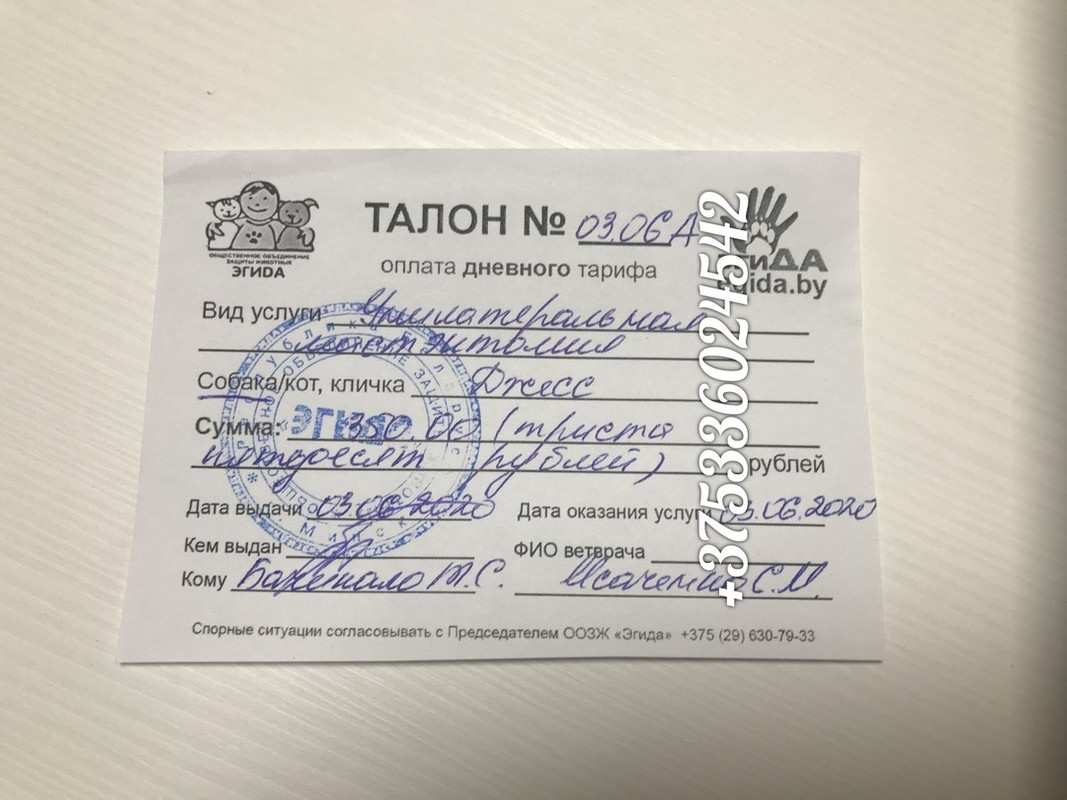 ТАЛОН № 03.06 А
оплата дневного тарифа
ОБЩЕСТВЕННОЕ ОБЪЕДИНЕНИЕ
ЗАЩИТЫ ЖИВОТНЫХ
ЭГИДА
эгиДА
egida.by
Вид услуги Унилатеральная
мастэктомия
Собака/кот, кличка Джесс
Сумма: 350.00 (триста
пятдесят рублей) рублей
Дата выдачи 03.06.2020 Дата оказания услуги 03.06.2020
Кем выдан ФИО ветврача
Кому Т.С. Исаченко С.М.
Спорные ситуации согласовывать с Председателем ООЗЖ «Эгида» +375 (29) 630-79-33
«ЭГИДА»
+375336024542